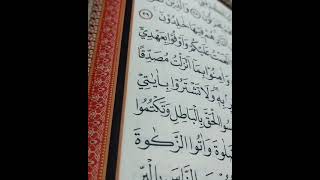 هُمْ فِيهَا خَٰلِدُونَ ٣٩
أَنْعَمْتُ عَلَيْكُمْ وَأَوْفُوا۟ بِعَهْدِىٓ
وَءَامِنُوا۟ بِمَآ أَنزَلْتُ مُصَدِّقًا
بِهِۦ وَلَا تَشْتَرُوا۟ بِـَٔايَٰتِى
ـسُوا۟ ٱلْحَقَّ بِٱلْبَٰطِلِ وَتَكْتُمُوا۟
ـلَوٰةَ وَءَاتُوا۟ ٱلزَّكَوٰةَ
ٱلنَّاسَ بِٱلْبِرِّ